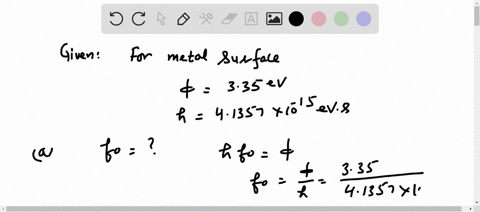 Given: For metal surface
ϕ = 3.35 eV
h = 4.1357 × 10^15 eV.s
(a) f₀ = ? h f₀ = ϕ
f₀ = ϕ/h = 3.35/4.1357 × 1